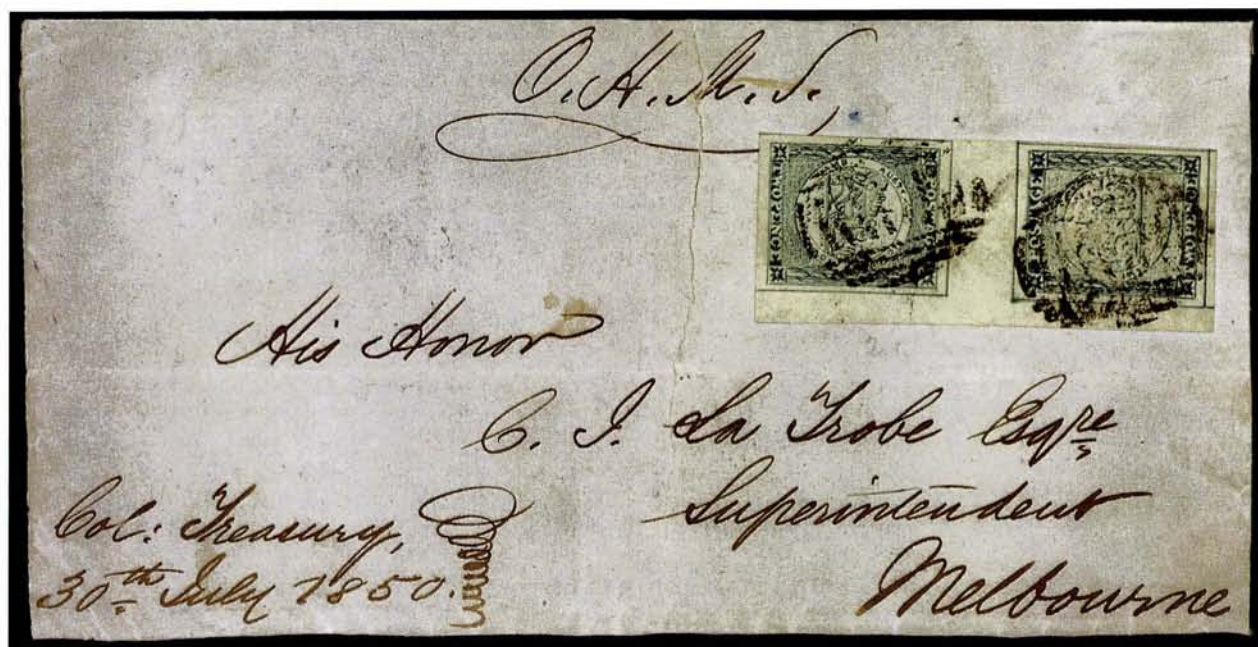 O. H. M. S.
POSTAGE
His Honor
C. J. La Trobe Esqre
Superintendent
Melbourne
Col: Treasury,
30th July 1850.